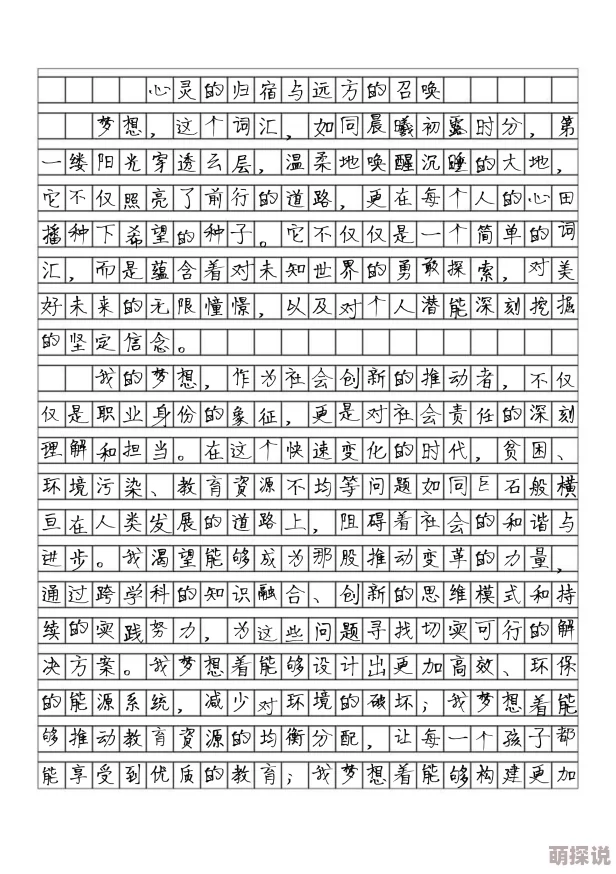 心灵的归宿与远方的召唤
梦想，这个词汇，如同晨曦初露时分，第
一缕阳光穿透云层，温柔地唤醒沉睡的大地，
它不仅照亮了前行的道路，更在每个人的心田
播种下希望的种子。它不仅仅是一个简单的词
汇，而是蕴含着对未知世界的勇敢探索，对美
好未来的无限憧憬，以及对个人潜能深刻挖掘
的坚定信念。
我的梦想，作为社会创新的推动者，不仅
仅是职业身份的象征，更是对社会责任的深刻
理解和担当。在这个快速变化的时代，贫困、
环境污染、教育資源不均等问题如同巨石般横
亘在人类发展的道路上，阻碍着社会的和谐与
进步。我渴望能够成为那股推动变革的力量，
通过跨学科的知识融合、创新的思维模式和持
续的实践努力，为这些问题寻找切实可行的解
决方案。我梦想着能够设计出更加高效、环保
的能源系统，减少对环境的破坏；我梦想着能
够推动教育資源的均衡分配，让每一个孩子都
能享受到优质的教育；我梦想着能够构建更加
萌探说